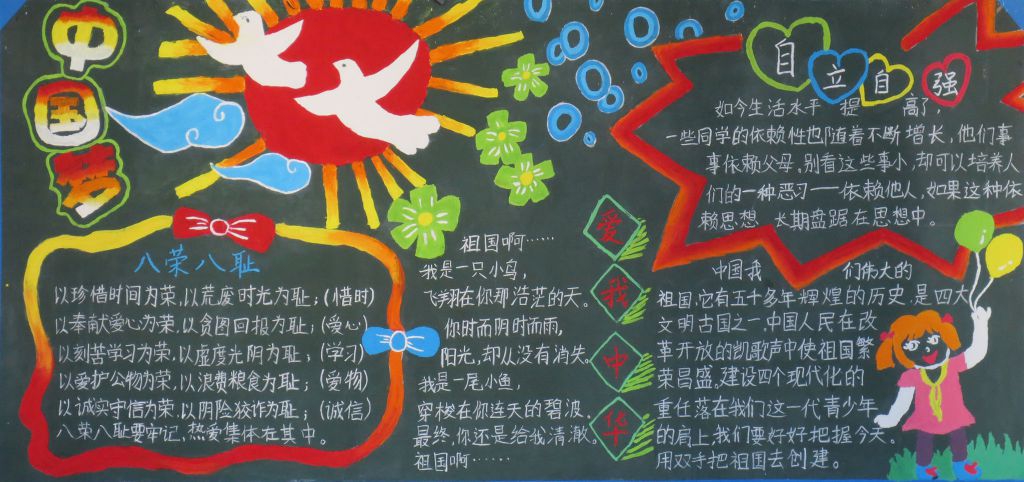 中国梦
八荣八耻
以珍惜时间为荣,以荒废时光为耻;(惜时)
以奉献爱心为荣,以贪图回报为耻;(爱心)
以刻苦学习为荣,以虚度光阴为耻;(学习)
以爱护公物为荣,以浪费粮食为耻;(爱物)
以诚实守信为荣,以阴险狡诈为耻;(诚信)
八荣八耻要牢记,热爱集体在其中。
祖国啊……
我是一只小鸟,
飞翔在你那浩茫的天。
你时而阴时而雨,
阳光,却从没有消失。
我是一尾小鱼,
穿梭在你连天的碧波。
最终,你还是给我清澈。
祖国啊……
爱
我
中
华
自立自强
如今生活水平 提 高了,
一些同学的依赖性也随着不断增长,他们事
事依赖父母,别看这些事小,却可以培养人
们的一种恶习——依赖他人,如果这种依
赖思想 长期盘踞在思想中。
中国我 们伟大的
祖国,它有五十多年辉煌的历史,是四大
文明古国之一,中国人民在改
革开放的凯歌声中使祖国繁
荣昌盛。建设四个现代化的
重任落在我们这一代青少年
的肩上,我们要好好把握今天。
用双手把祖国去创建。